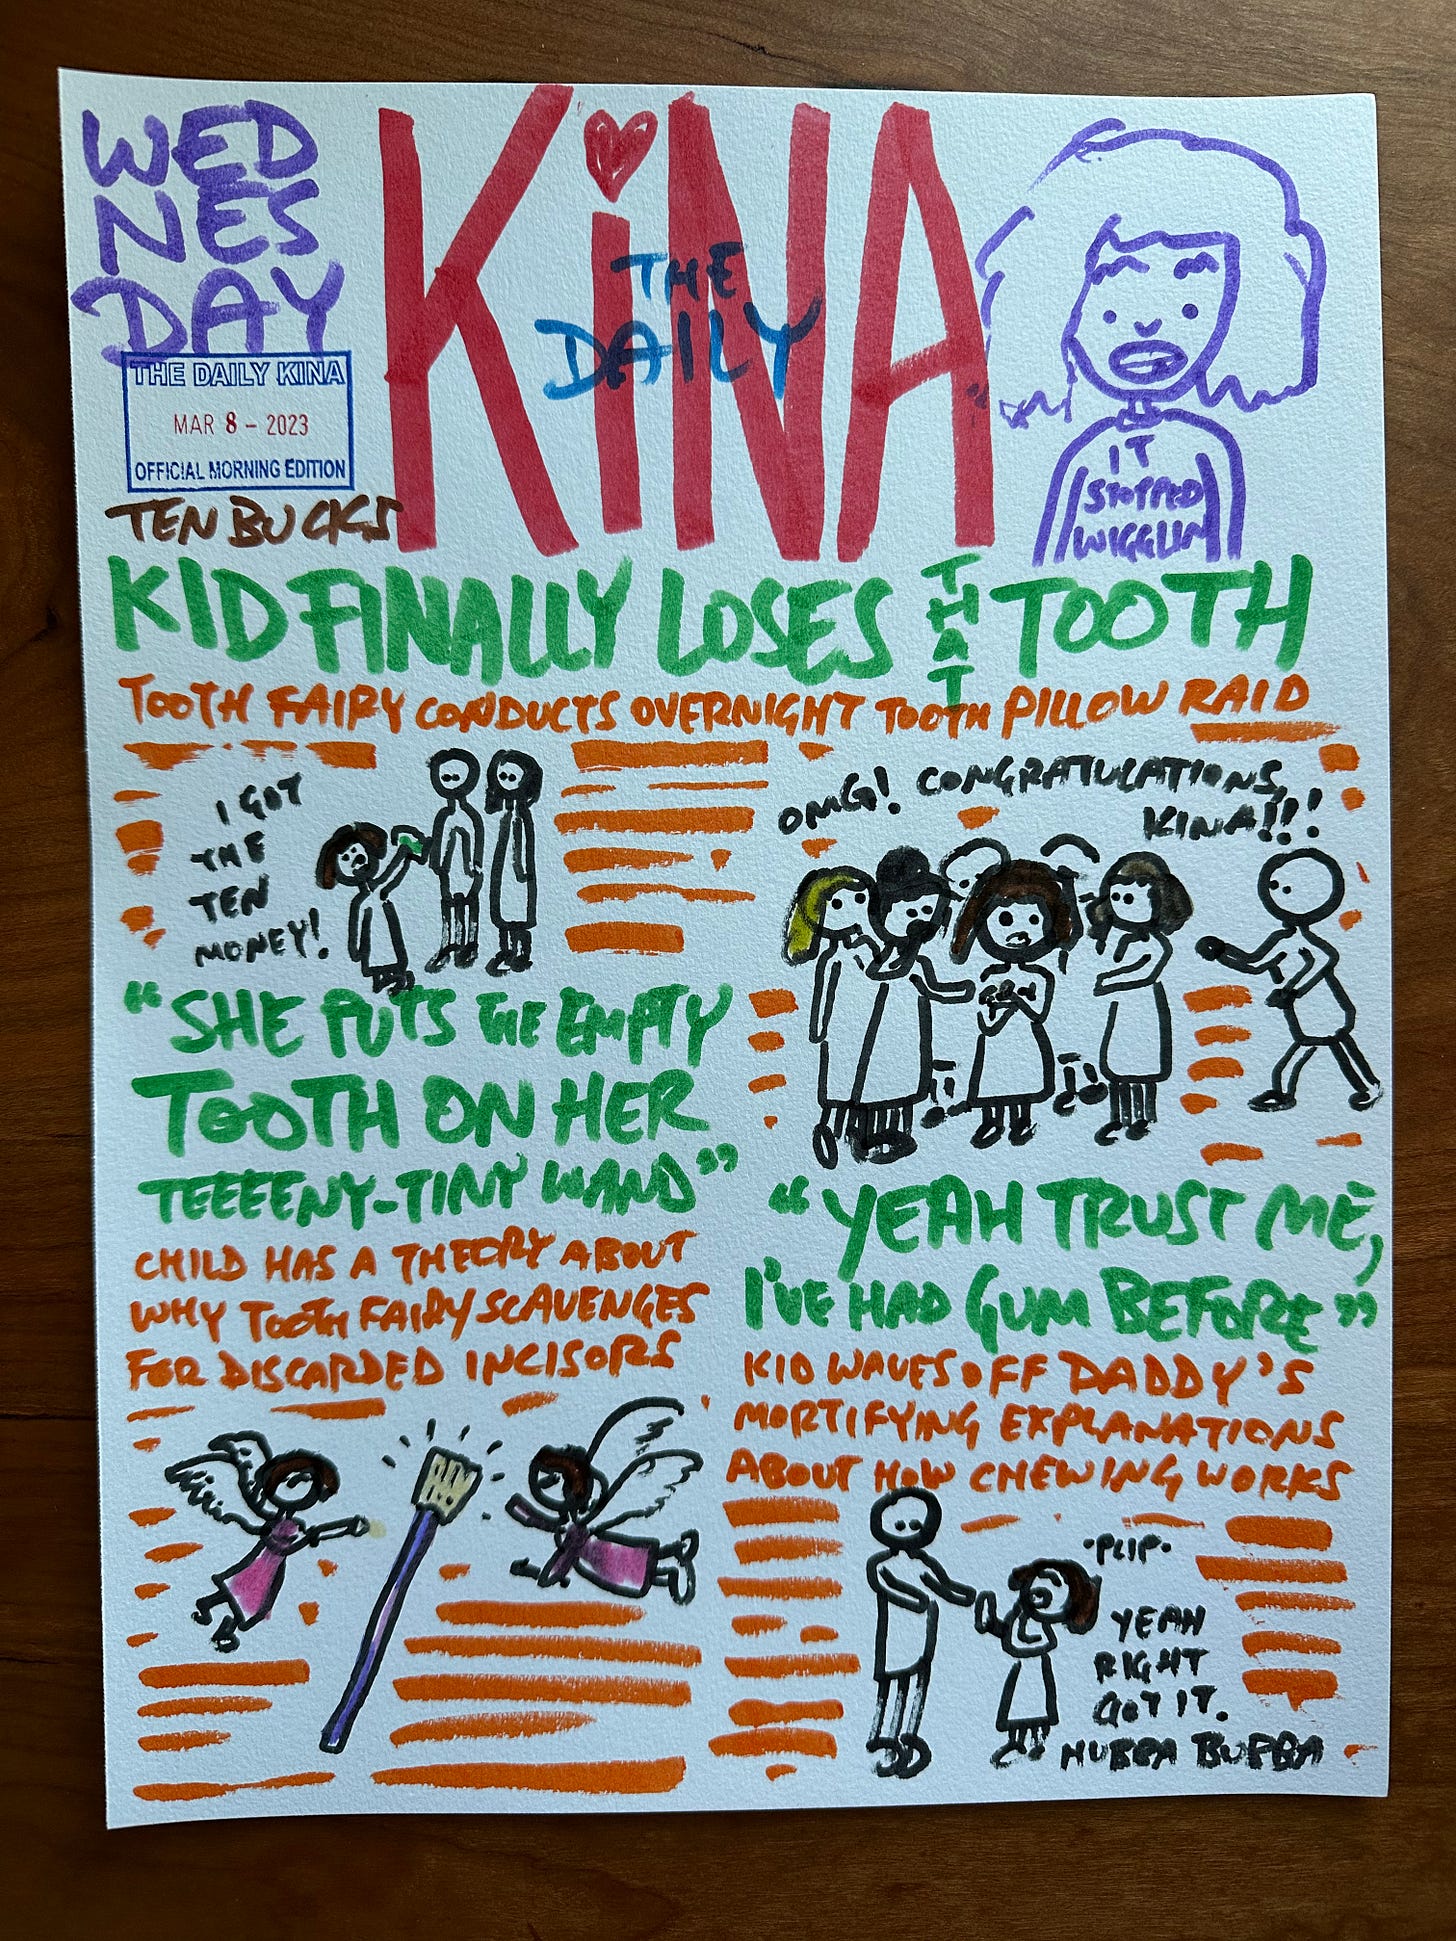 WED
NES
DAY
THE DAILY KINA
MAR 8 - 2023
OFFICIAL MORNING EDITION
TEN BUCKS
KiNA
THE
DAILY
IT
STOPPED
WIGGLIN
KID FINALLY LOSES THAT TOOTH
TOOTH FAIRY CONDUCTS OVERNIGHT TOOTH PILLOW RAID
I GOT
THE
TEN
MONEY!
"SHE PUTS THE EMPTY
TOOTH ON HER
TEEEENY-TINY WAND"
CHILD HAS A THEORY ABOUT
WHY TOOTH FAIRY SCAVENGES
FOR DISCARDED INCISORS
OMG! CONGRATULATIONS,
KINA!!!
"YEAH TRUST ME,
I'VE HAD GUM BEFORE"
KID WAVES OFF DADDY'S
MORTIFYING EXPLANATIONS
ABOUT HOW CHEWING WORKS
·PLIP·
YEAH
RIGHT
GOT IT.
HUBBA BUBBA